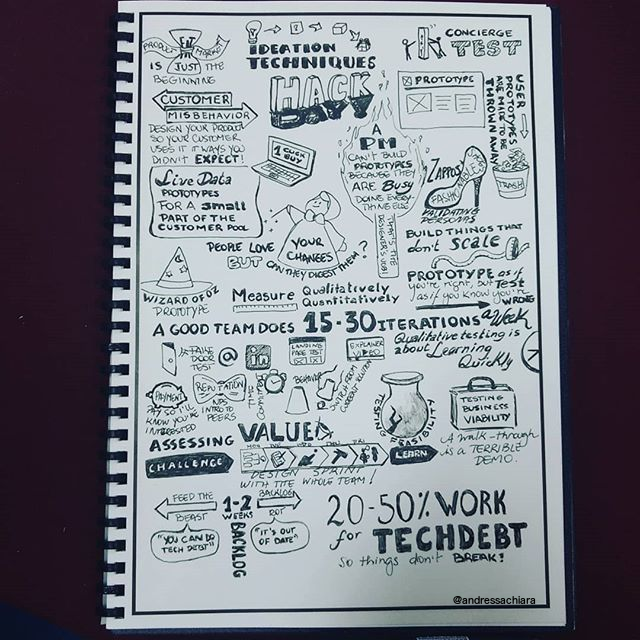 PRODUCT MARKET
FIT
IS JUST THE
BEGINNING
IDEATION
TECHNIQUES
HACK
DAYY
CONCIERGE
TEST
PROTOTYPE
USER
PROTOTYPES
ARE MADE TO BE
THROWN AWAY
TRASH
CUSTOMER
MISBEHAVIOR
DESIGN YOUR PRODUCT
SO YOUR CUSTOMER
USES IT IT WAYS YOU
DIDN'T EXPECT!
1 CLICK
BUY
A
PM
CAN'T BUILD
PROTOTYPES
BECAUSE THEY
ARE BUSY
DOING EVERY-
THING ELSE
THAT'S THE
DESIGNER'S JOB!
ZAPPOS
VALIDATING
PERSONAS
Live Data
PROTOTYPES
FOR A small
PART OF THE
CUSTOMER POOL
PEOPLE LOVE
YOUR
CHANGES
BUT
CAN THEY DIGEST THEM?
BUILD THINGS THAT
don't SCALE
WIZARD OF OZ
PROTOTYPE
Measure
Qualitatively
Quantitatively
PROTOTYPE as if
you're right, but TEST
as if you know you're
WRONG
A GOOD TEAM DOES 15-30 ITERATIONS a Week
FAKE
DOOR
TEST
@
in
LANDING
PAGE TEST
EXPLAINER
VIDEO
Qualitative testing is
about Learning
Quickly
PAYMENT
PAY SO I'LL
KNOW YOU'RE
INTERESTED
REPUTATION
NPS
INTRO TO
PEERS
TIME
BEHAVIOR
SWITCH FROM
CURRENT
TESTING
FEASIBILITY
TESTING
BUSINESS
VIABILITY
A walk-through
is a TERRIBLE
DEMO.
ASSESSING VALUE
CHALLENGE
MON TUE WED THU FRI
LEARN
DESIGN SPRINT
WITH THE WHOLE TEAM!
FEED THE
BEAST
"YOU CAN DO
TECH DEBT"
1-2
WEEKS
BACKLOG
BACKLOG
ROT
"IT'S OUT
OF DATE"
20-50% WORK
for TECHDEBT
so things don't BREAK!
@andressachiara